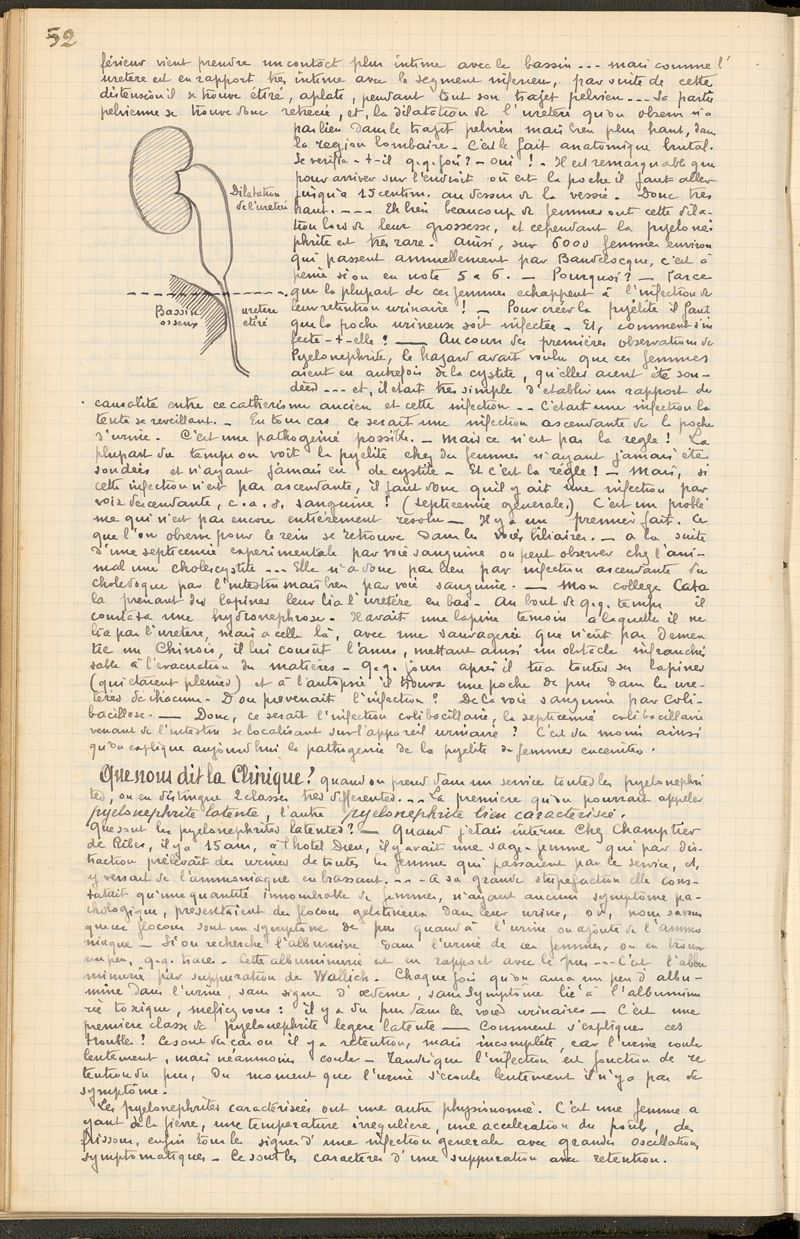 52
férieur vient prendre un contact plus intime avec le bassin --- mais comme l'
uretère est en rapport très intime avec le segment inférieur, par suite de cette
distension il se trouve étiré, aplati, pendant tout son trajet pelvien --- Sa partie
pelvienne se trouve donc retrecie, et, la dilatation de l'uretère qu'on observe n'a
pas lieu dans le trajet pelvien mais bien plus haut, dans
la region lombaire. C'est le fait anatomique brutal.
Se verifie-t-il q.q. fois? - oui! - Il est remarquable que
pour arriver sur l'endroit où est la poche il faut aller
jusqu'à 15 centim. au dessus de la vessie. Donc très
haut. ---- Eh bien beaucoup de femmes ont cette dila-
tion lors de leur grossesse, et cependant la pyelone-
phrite est très rare. Ainsi, sur 6000 femmes environ
qui passent annuellement par Baudelocque, c'est à
peine si on en note 5 a 6. - Pourquoi? - Parce
que la plupart de ces femmes echappent à l'infection de
leur retention urinaire! - Pour créer la pyélite il faut
que la poche urineuse soit infectée. - Et, comment s'in
fecte-t-elle? - Au cours des premières observations de
Pyelonephrite, le hazard avait voulu que ces femmes
aient eu autrefois de la cystite, qu'elles aient été son-
dées --- et, il etait très simple d'etablir un rapport de
Dilatation
de l'uretère
Bassin
osseux
uretère
etiré
causalité entre ce catheterisme ancien et cette infection -- C'etait une infection la
tente se reveillant. - En tout cas ce serait une infection ascendante de la poche
d'urine. - C'est une pathogeinie possible. - mais ce n'est pas la regle! La
plupart du temps on voit la pyelite chez des femmes n'ayant jamais été
sondées et n'ayant jamais eu de cystite - Et c'est la régle! - Mais, si
cette infection n'est pas ascendante, il faut donc qu'il y ait une infection par
voie descendante, c.a.d. sanguine! (septicemie generale.) C'est un problè
me qui n'est pas encore entièrement resolu - Il y a un premier fait. Ce
que l'on observe pour le rein se retrouve dans les voies biliaires. - a la suite
d'une septicemie experimentale par voie sanguine on peut observer chez l'ani-
mal une cholecystite --- Elle n'a donc pas lieu par infection ascendante du
choledoque par l'intestin mais bien par voie sanguine. - Mon collegue Cata
la prenant des lapines leur lia l'uretère en bas. Au bout de q.q. temps il
constata une hydronephrose. Il avait une lapine temoin a laquelle il ne
lia pas l'uretère, mais a celle là, avec une sauvagerie que n'eut pas demen
tie un Chinois, il lui cousut l'anus, mettant ainsi un obstacle infranchis
sable à l'evacuation des matières - q.q. jours après il tua toutes ses lapines
(qui etaient pleines) et à l'autopsie il trouva une poche de pus dans les ure-
tères de chacune. D'ou provenait l'infection? De la voie sanguine par Coli-
bacillose. - Donc, ce serait l'infection colibacillaire, la septicemie colibacillaire
venant de l'intestin se localisant sur l'appareil urinaire? C'est du moins ainsi
qu'on explique aujourd'hui la pathogenie de la pyelite des femmes enceintes.
Que nous dit la Clinique? quand on prend dans un service toutes les pyelonephri
tes, on en distingue 2 classes très differentes. -- La première qu'on pourrait appeler
pyelonephrite latente, l'autre pyelonephrite bien caractérisée.
Que sont les pyelonephrites latentes? - Quand j'etais interne chez Champetier
de Ribes, il y a 15 ans, à l'hotel Dieu, il y avait une sage-femme qui par dis-
traction prélevait des urines de toutes les femmes qui passaient par le service, et,
y versait de l'ammoniaque en brassant. --- A sa grande stupefaction elle cons-
tatait qu'une quantité innombrable de femmes, n'ayant aucun symptome pa-
thologique, presentaient des flocons gelatineux dans leur urine, or, nous savons
que ces flocons sont un symptome de pus quand à l'urine on ajoute de l'ammo
niaque - Si on recherche l'albumine dans l'urine de ces femmes, on en trouve
un peu, q.q. traces. - Cette albuminurie est en rapport avec le pus --- C'est l'albu
minurie par suppuration de Wallich. Chaque fois qu'on aura un peu d'albu-
mine dans l'urine, sans signe d'oedeme, sans symptôme lié à l'albuminu
rie toxique, mefiez vous: il y a du pus dans les voies urinaires - C'est une
première classe de pyelonephrite legère latente - Comment s'expliquer ces
trouble? Ce sont des cas ou il y a rétention, mais incomplète, car l'urine coule
lentement, mais néanmoins coule - Tandis que l'infection est fonction de re
tention du pus, du moment que l'urine s'ecoule lentement il n'y a pas de
symptôme.
Les pyelonephrites caractérisées ont une autre physionomie. C'est une femme a
yant de la fièvre, une temperature irreguliere, une acceleration du pouls, des
frissons, enfin tous les signes d'une infection generale avec grandes oscillations
symptomatiques - Ce sont les caractères d'une suppuration avec retention.